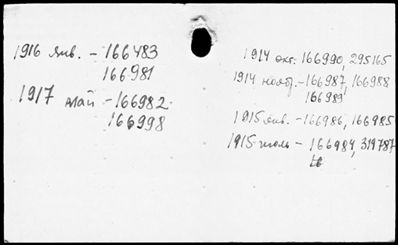 1916 янв. - 166483
166981
1917 май - 166982
166998
1914 окт. 166990, 295165
1914 нояб. - 166987, 166988
166989
1915 янв. - 166986, 166985
1915 июль - 166984, 319787